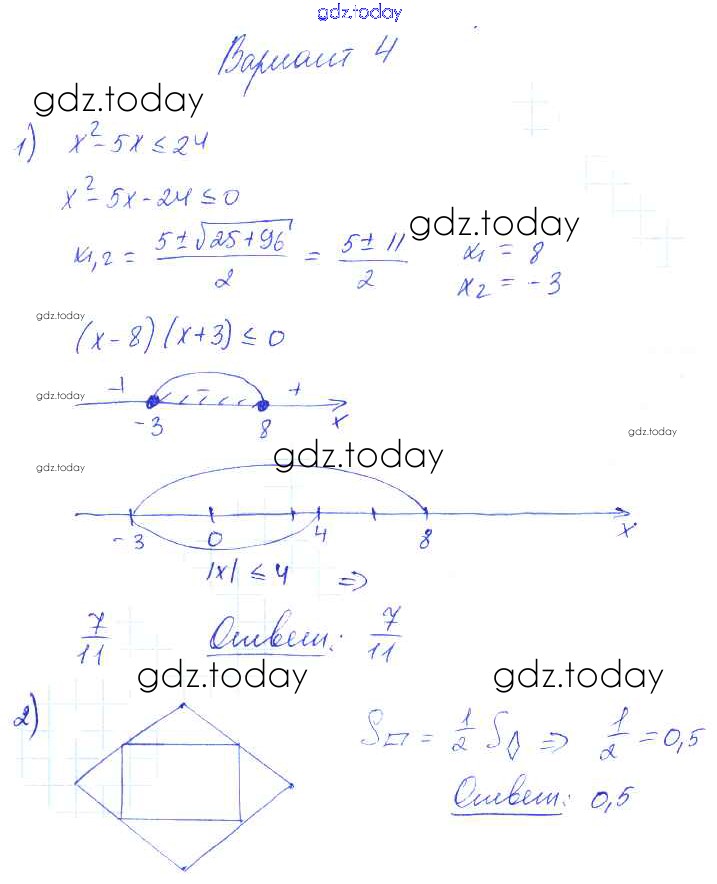 gdz.today
Вариант 4
gdz.today
1) x² - 5x ≤ 24
x² - 5x - 24 ≤ 0
gdz.today
x₁,₂ = (5 ± √(25 + 96))/2 = (5 ± 11)/2 x₁ = 8
x₂ = -3
gdz.today
(x - 8)(x + 3) ≤ 0
gdz.today + - +
-3 8 x
gdz.today
gdz.today gdz.today
-3 0 4 8 x
|x| ≤ 4 ⇒
7/11 Ответ: 7/11
gdz.today gdz.today
2) S▱ = 1/2 S◊ ⇒ 1/2 = 0,5
Ответ: 0,5